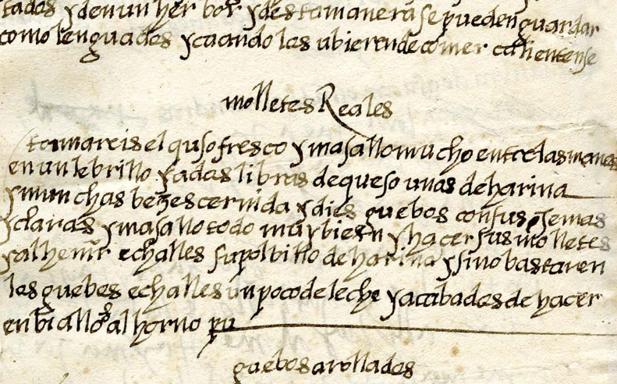 tadas y den un her bor y desta manera se pueden guardar
como lenguados y cuando las ubieren de comer calientense
molletes Reales
tomareis el queso fresco y masallo mucho entre las manos
en un lebrillo y a dos libras de queso unas de harina
y munchas bezes cernida y dies guebos con sus yemas
y claras y masallo todo muy bien y hacer sus molletes
y al henir echalles su polbillo de harina y si no bastaren
los guebos echalles un poco de leche y acabados de hacer
enbiallos al horno
guebos arollados